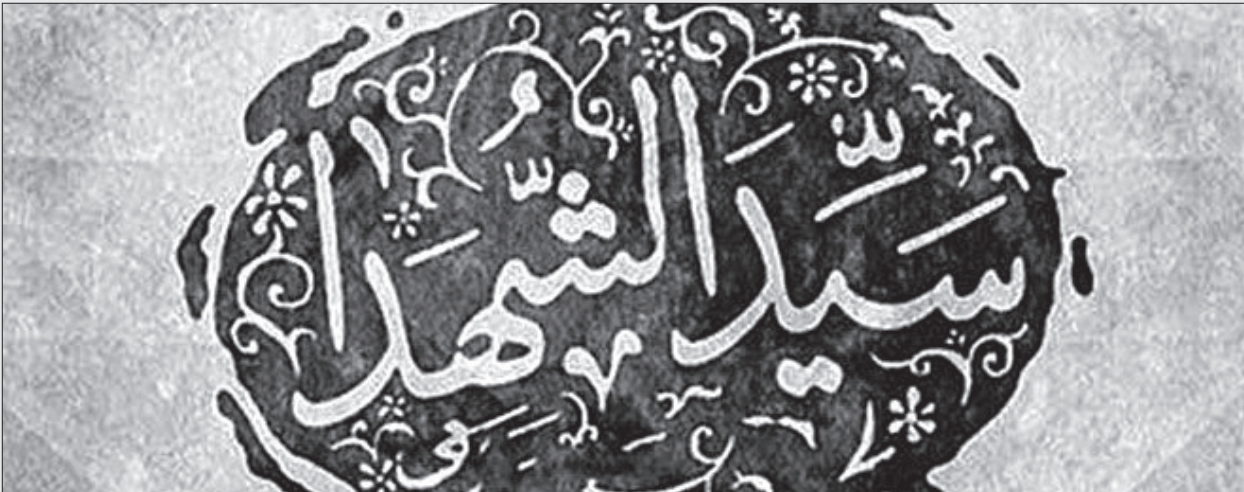 سَيِّدَ الشُّهَدا